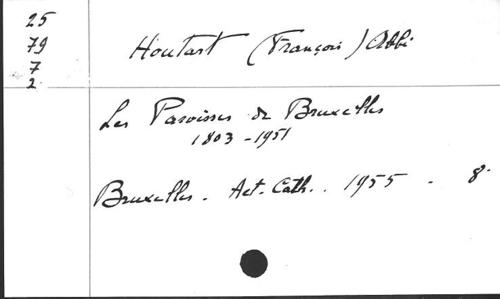 25
79
7
2
Houtart (François) Abbé
Les Paroisses de Bruxelles
1803-1951
Bruxelles. Act. Cath.. 1955 - 8°